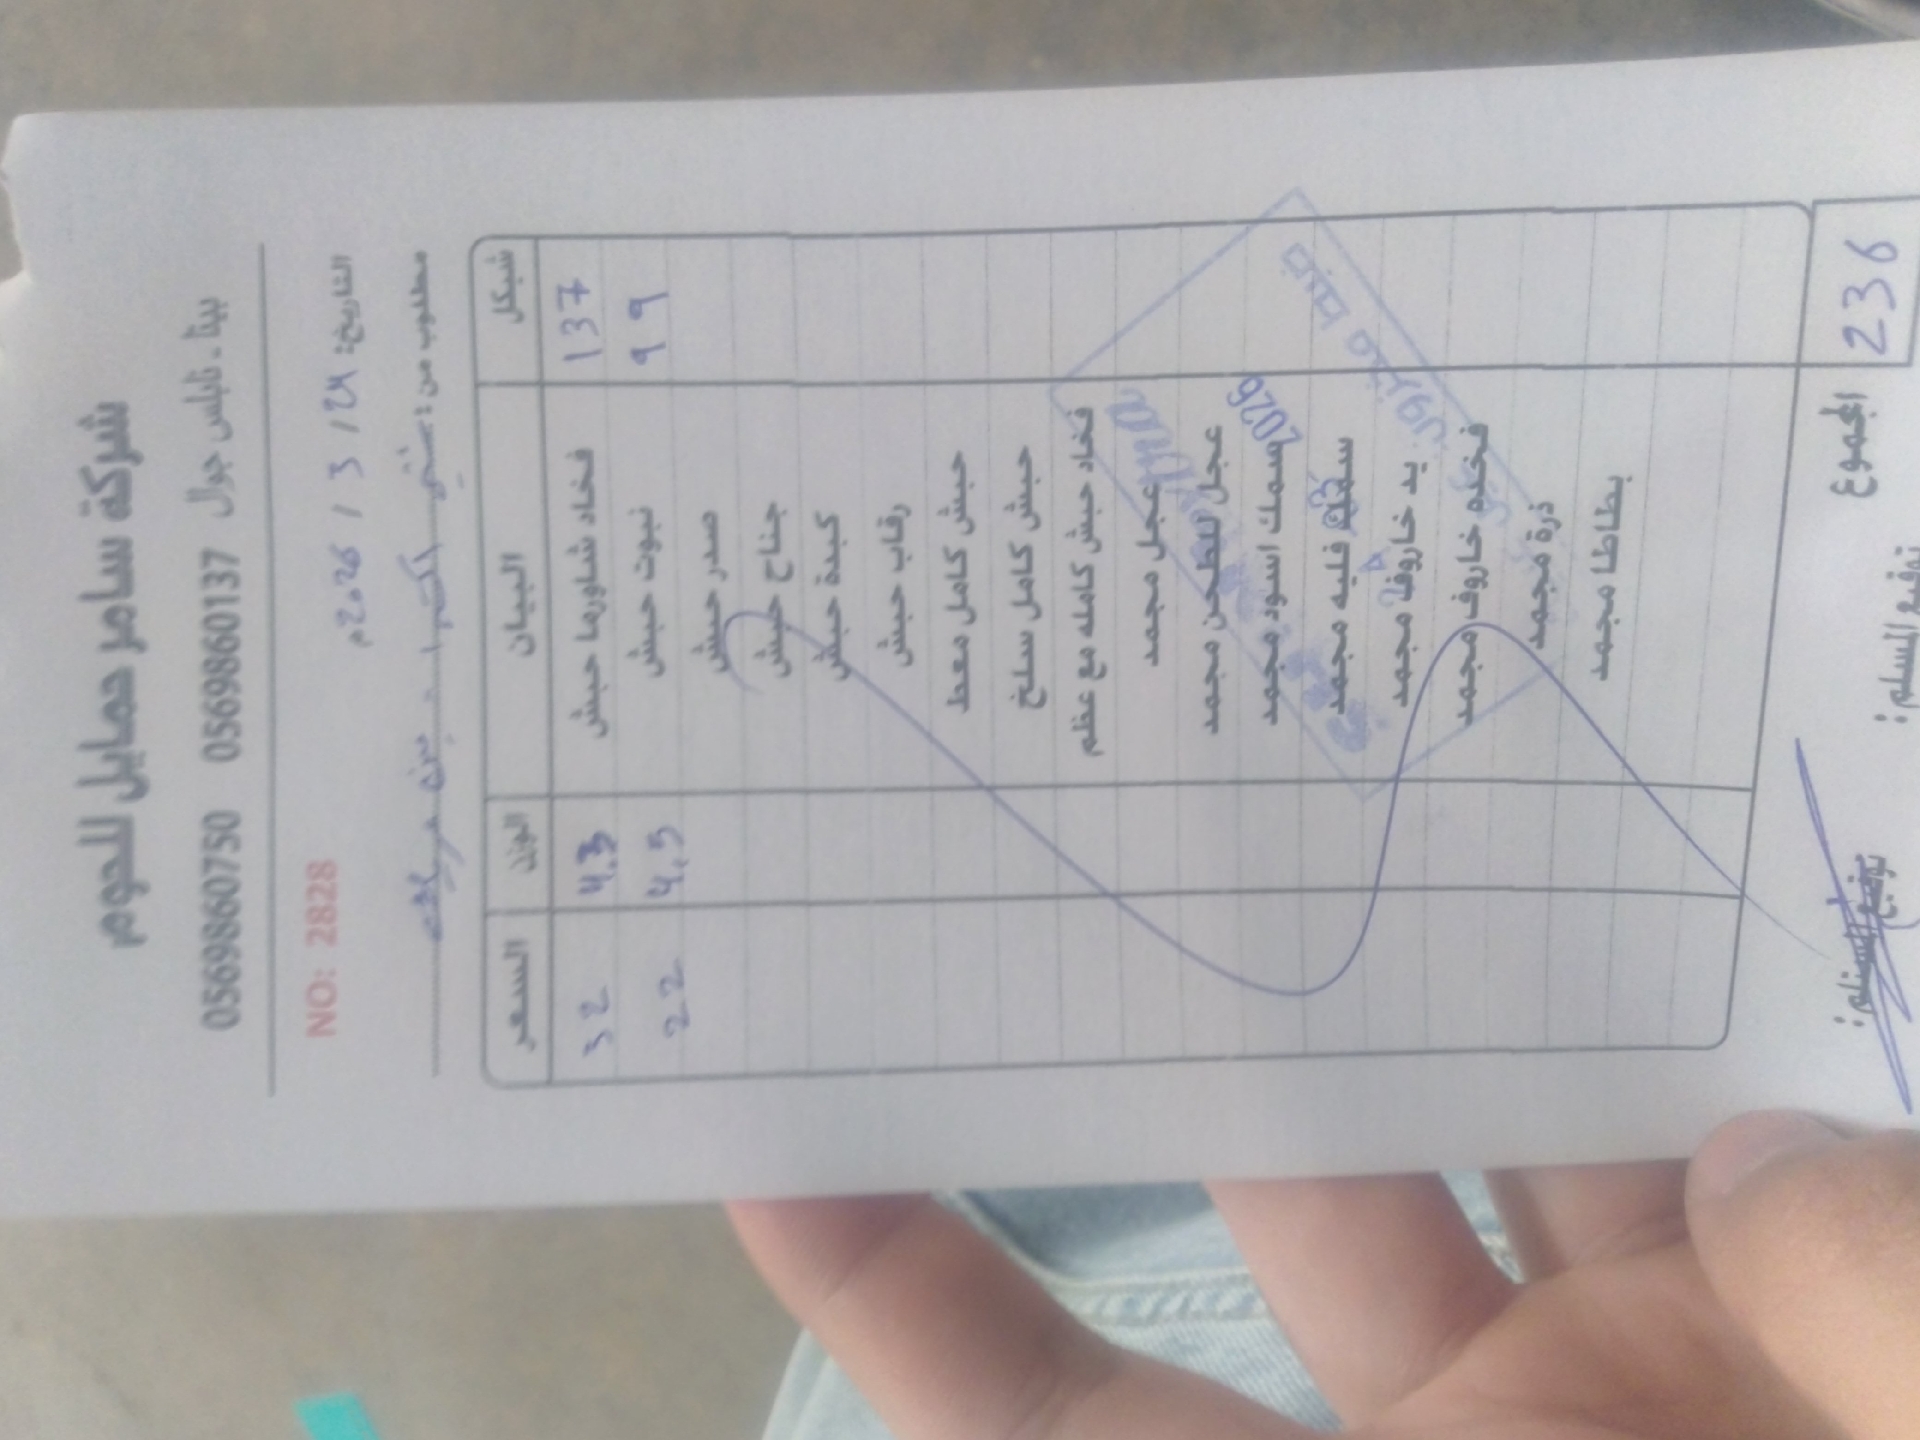 شركة سامر حمايل للحوم
بيتا - نابلس جوال 0569860137 0569860750
التاريخ: 24 / 3 / 2026م NO: 2828
مطلوب من:
شيكل البيان الوزن السعر
137 فخاد شاورما حبش 4.3 32
99 نبوت حبش 4.5 22
صدر حبش
جناح حبش
كبدة حبش
رقاب حبش
حبش كامل معط
حبش كامل سلخ
فخاد حبش كامله مع عظم
عجل مجمد
عجل للطحن مجمد
سمك اسود مجمد
2026
سمك فليه مجمد
يد خاروف مجمد
فخذه خاروف مجمد
ذرة مجمد
بطاطا مجمد
236 المجموع
توقيع المسلم: توقيع المستلم: